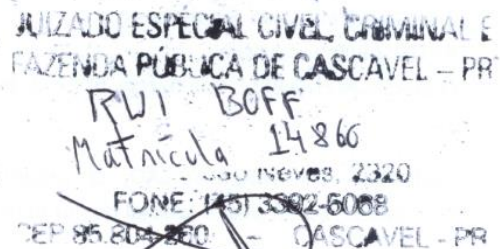 JUIZADO ESPECIAL CIVEL, CRIMINAL E
FAZENDA PÚBLICA DE CASCAVEL - PR
RUI BOFF
Matrícula 14860
Neves, 2320
FONE: (45) 3392-5068
CEP 85.804-260 - CASCAVEL - PR